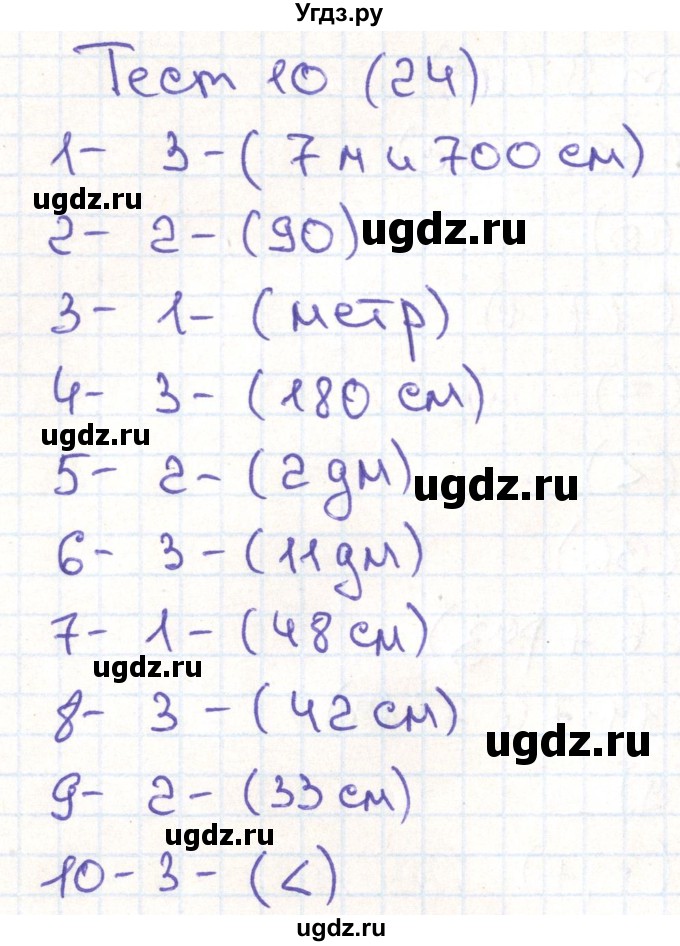 Угдз.ру
Тест 10 (24)
1- 3-(7 м и 700 см)
ugdz.ru
2- 2-(90)
ugdz.ru
3- 1- (метр)
4- 3-(180 см)
ugdz.ru
5- 2-(2 дм)
ugdz.ru
6- 3-(11 дм)
7- 1-(48 см)
ugdz.ru
8- 3-(42 см)
ugdz.ru
9- 2-(33 см)
ugdz.ru
10-3-(<)
ugdz.ru